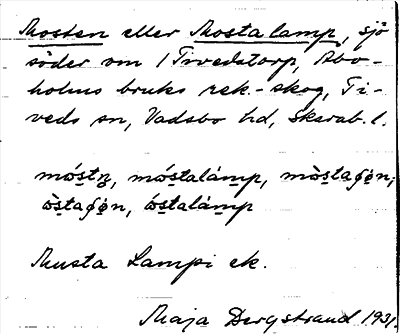 Mosten eller Mostalamp, sjö
söder om 1 Tivedstorp, Abo-
holms bruks rek.-skog, Ti-
veds sn, Vadsbo hd, Skarab. l.
móstn̥, móstalámp, mòstasjøn;
òstasjøn, óstalámp
Musta Lampi ek.
Maja Bergstrand 1931